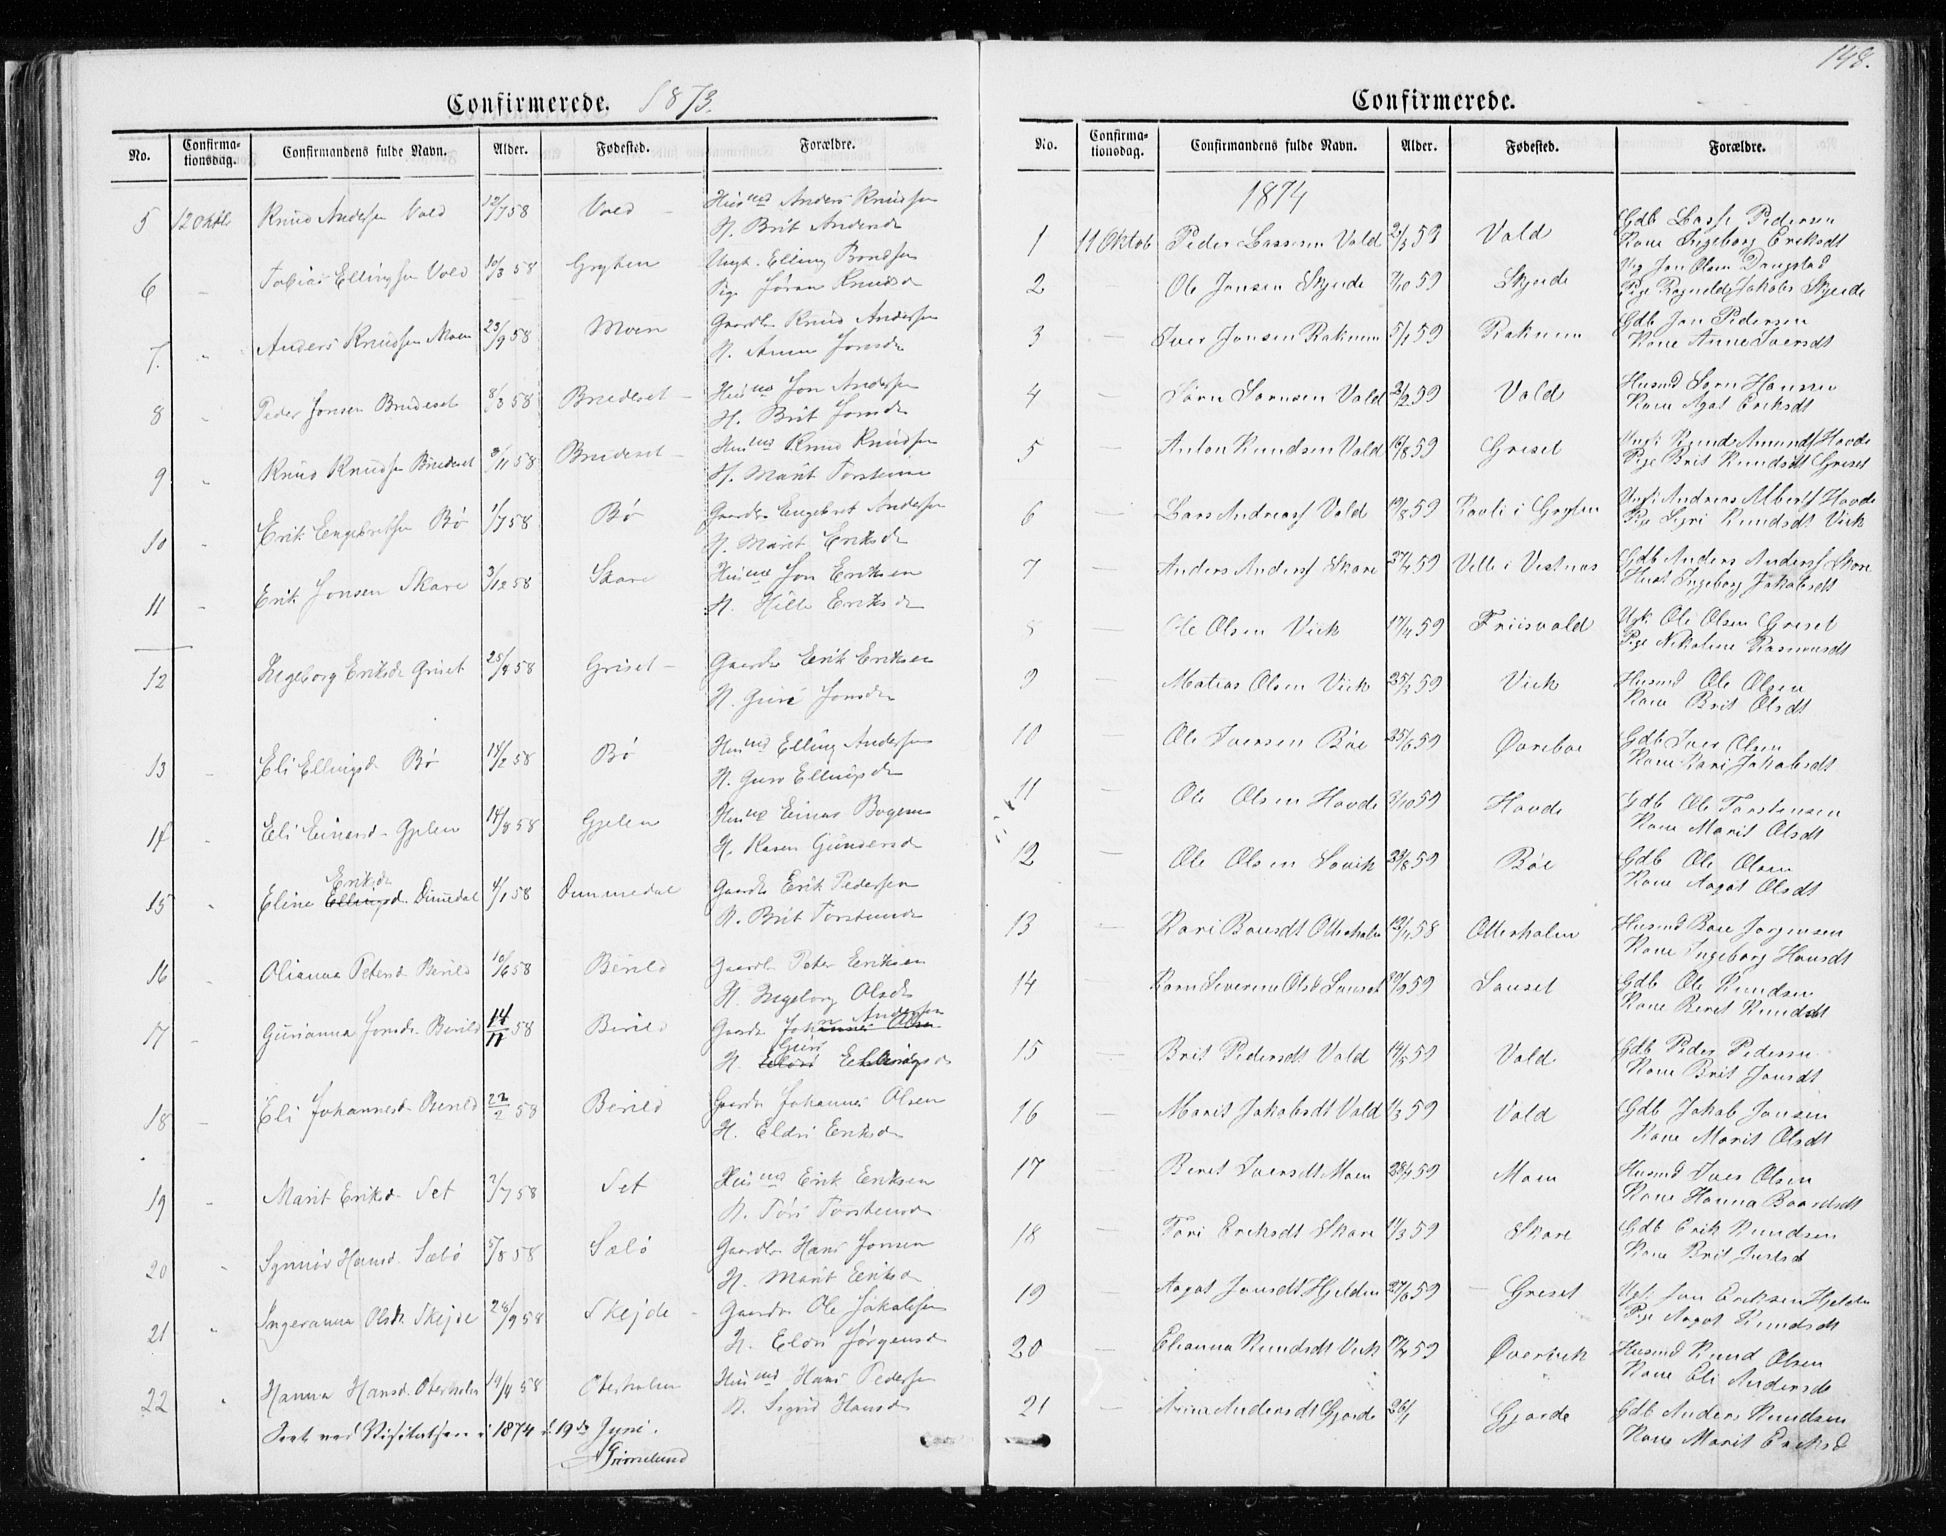 Confirmerede. 1873.
No. Confirma-tionsdag. Confirmandens fulde Navn. Alder. Fødested. Forældre.
5 12 Oktb Knud Andersen Vold 12/7 58 Vold Husmd Anders Knudsen
K. Brit Andersd
6 Tobias Ellingsen Vold 10/3 58 Gryten Ungk. Elling Knudsen
Pige Jøran Knudsd
7. Anders Knudsen Moen 23/9 58 Moen Gaardbr Knud Andersen
K. Anne Jonsd
8 Peder Jonsen Brudeset 8/3 58 Brudeset Husmd Jon Andersen
K. Brit Jonsd
9 Knud Knudsen Brudeset 3/11 58 Brudeset Husmd Knud Knudsen
K. Marit Torstensd
10 Erik Engebretsen Bø 1/7 58 Bø Gaardbr Engebret Andersen
K. Marit Eriksd
11 Erik Jonsen Skare 3/12 58 Skare Husmd Jon Eriksen
K. Hille Eriksd
12 Ingeborg Eriksd Griset 25/4 58 Griset Gaardbr Erik Eriksen
K. Guri Jonsd
13 Eli Ellingsd Bø 14/2 58 Bø Husmd Elling Andersen
K. Guro Ellingsd
14 Eli Einarsd Gjelen 14/8 58 Gjelen Husmd Einar Bogens
K. Karen Gundersd
Eriksd
15 Eline Ellingsd. Dimedal 4/1 58 Dimmedal Gaardbr Erik Pedersen
K. Brit Torstensd
16 Olianna Petersd Berild 10/6 58 Berild Gaardbr Peter Eriksen
K. Ingeborg Olsd
n Andersen
17 Gurianna Jonsd. Berild 14/11 58 Berild Gaardbr Johannes Olsen
Guri
K. Eldri Ellingsd
18 Eli Johannesd. Berild 22/2 58 Berild Gaardbr Johannes Olsen
K. Eldri Eriksd
19 Marit Eriksd Set 3/7 58 Set Husmd Erik Eriksen
K. Tøri Torstensd
20 Synnøv Hansd. Sæbø 5/8 58 Sæbø Gaardbr Hans Jonsen
K. Marit Eriksd
21 Ingeranna Olsd. Skejde 28/9 58 Skejde Gaardbr Ole Jakobsen
K. Eldri Jørgensd
22 Hanna Hansd. Oterholm 19/4 58 Oterholm Husmd Hans Pedersen
K. Sigrid Hansd
Seet ved Visitatsen i 1874 d. 19de Juni.
Grimelund
148.
Confirmerede.
No. Confirma-tionsdag. Confirmandens fulde Navn. Alder. Fødested. Forældre.
1874
1 11 Oktob Peder Lassesen Vold 2/3 59 Vold Gdb Lasse Pedersen
Kone Ingeborg Eriksdt
2 Ole Jonsen Skjeide 7/10 59 Skjeide Ug Jon Olsen Dangstad
Pige Ragnilde Jakobs Skjeide
3 Iver Jonsen Raknem 5/1 59 Raknem Gdb Jon Pedersen
Kone Anne Iversdt
4 Sørn Sørnsen Vold 2/2 59 Vold Husmd Sørn Hansen
Kone Agot Eriksdt
5 Anton Knudsen Vold 16/8 59 Greset Ungk. Knud Amundsf Hovde
Pige Brit Knudsdt Greset
6 Lars Andreasf Vold 19/8 59 Kavli i Gryten Ungk Andreas Albertsf Hovde
Pige Syri Knudsdt Vik
7 Anders Andersf Skare 27/4 59 Velle i Vestnes Gdb Anders Andersf Skare
Hust Ingeborg Jakobsdt
8 Ole Olsen Viik 17/4 59 Friisvold Ugk. Ole Olsen Greset
Pige Nikoline Rasmusdt
9 Matias Olsen Viik 25/2 59 Viik Husmd Ole Olsen
Kone Brit Olsdt
10 Ole Iversen Bøe 25/6 59 Øvreboe Gdb Iver Olsen
Kone Kari Jakobsdt
11 Ole Olsen Hovde 3/10 59 Hovde Gdb Ole Torstensen
Kone Marit Olsdt
12 Ole Olsen Søvik 23/8 59 Bøe Gdb Ole Olsen
Kone Aagot Olsdt
13 Kari Bousdt Otterholm 12/4 58 Otterholm Husmd Boe Jørgensen
Kone Ingeborg Hansdt
14 Karn Severine Olsd Sanset 20/9 59 Sanset Gdb Ole Knudsen
Kone Beret Knudsdt
15 Brit Pedersdt Vold 14/5 59 Vold Gdb Peder Pedersen
Kone Brit Jonsdt
16 Marit Jakobsdt Vold 1/3 59 Vold Gdb Jakob Jonsen
Kone Marit Olsdt
17 Beret Iversdt Moen 28/4 59 Moen Husmd Iver Olsen
Kone Hanna Baardsdt
18 Tøri Eriksdt Skare 11/3 59 Skare Gdb Erik Knudsen
Kone Brit
19 Aagot Jonsdt Hjelden 27/6 59 Greset Ugk. Jon Eriksen Hjelden
Pige Aagot Knudsdt
20 Elianna Knudsdt Viik 17/4 59 Øverviik Husmd Knud Olsen
Kone Eli Andersdt
21 Anna Andersdt Gjerde 26/1 Gjerde Gdb Anders Knudsen
Kone Marit Eriksd